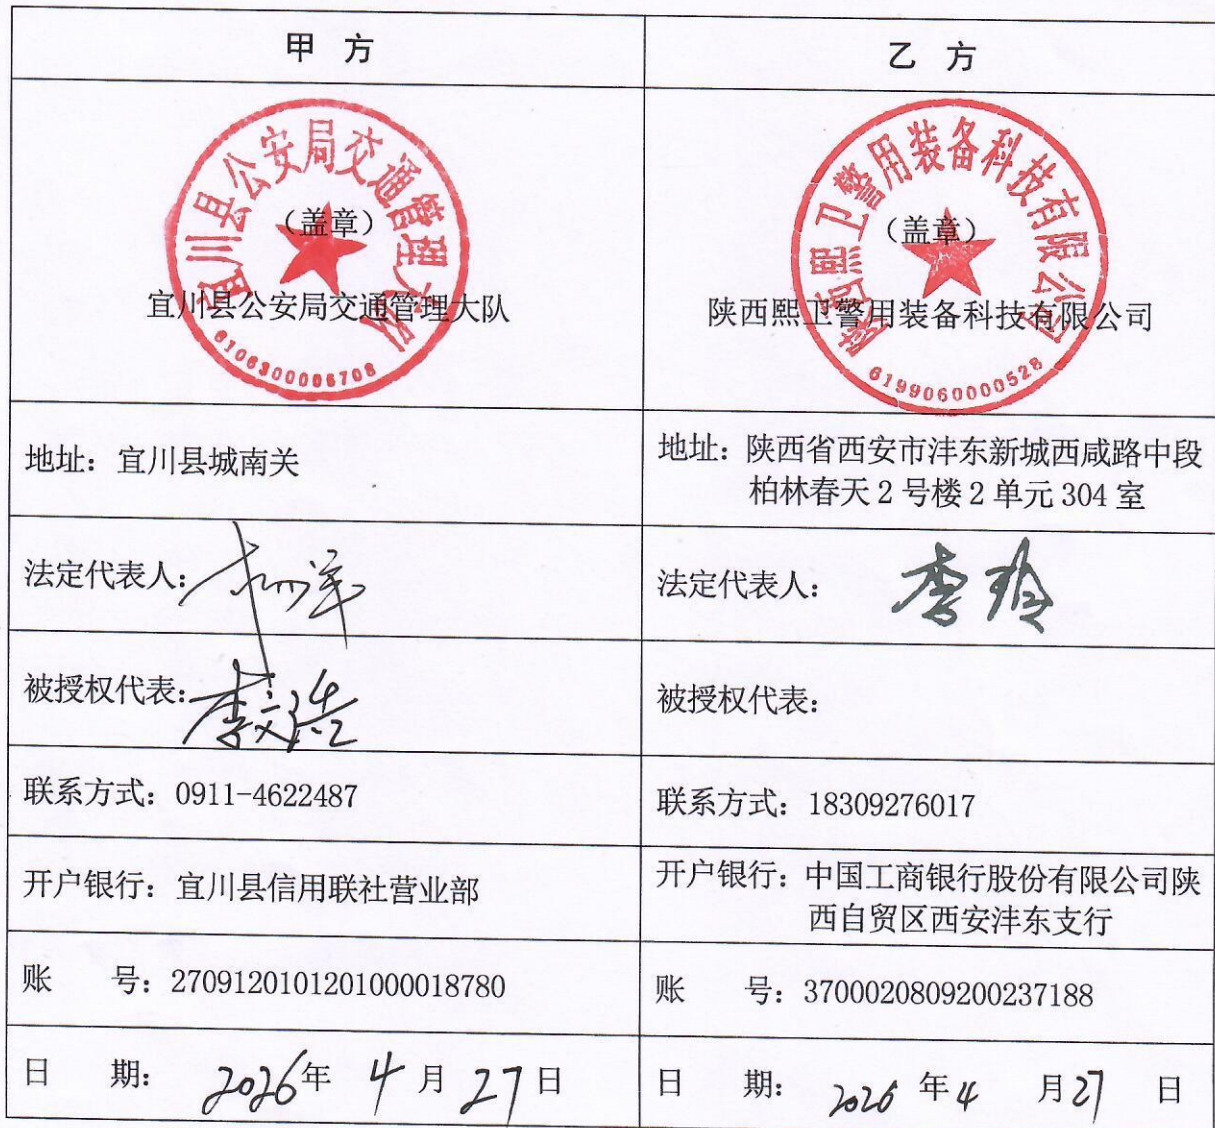 甲 方
乙 方
宜川县公安局交通管理大队
(盖章)
宜川县公安局交通管理大队
6106300006708
陕西熙卫警用装备科技有限公司
(盖章)
陕西熙卫警用装备科技有限公司
6199060000528
地址：宜川县城南关
地址：陕西省西安市沣东新城西咸路中段
柏林春天2号楼2单元304室
法定代表人：
法定代表人：李
被授权代表：李文浩
被授权代表：
联系方式：0911-4622487
联系方式：18309276017
开户银行：宜川县信用联社营业部
开户银行：中国工商银行股份有限公司陕
西自贸区西安沣东支行
账 号：2709120101201000018780
账 号：3700020809200237188
日 期： 2026年 4 月 27 日
日 期： 2026 年 4 月 27 日